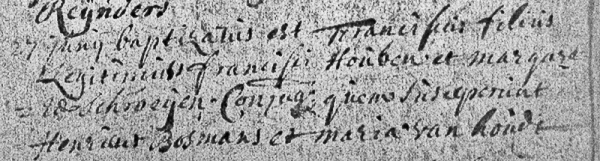 Reÿnders
27 junij baptizatus est Franciscus filius
Legitimus francisci Houben et margar
Schroeÿen Conjug quem susceperunt
Henricus Bosmans et maria van houdt